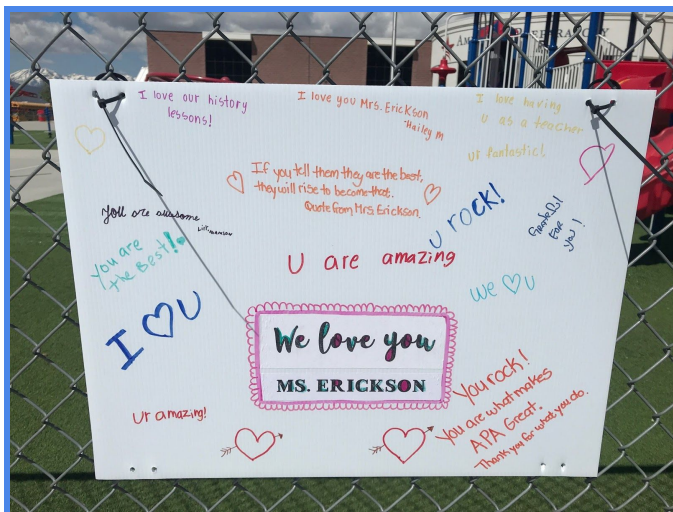 I love our history
lessons!
I love you Mrs. Erickson
-Hailey m
I love having
u as a teacher
ur fantastic!
If you tell them they are the best,
they will rise to become that.
Quote from Mrs. Erickson
You are awesome
u rock!
Grateful
FOR
you!
You are
the Best!
U are amazing
we ♡ u
I ♡ U
We love you
MS. ERICKSON
Ur amazing!
You rock!
You are what makes
APA Great.
Thank you for what you do.